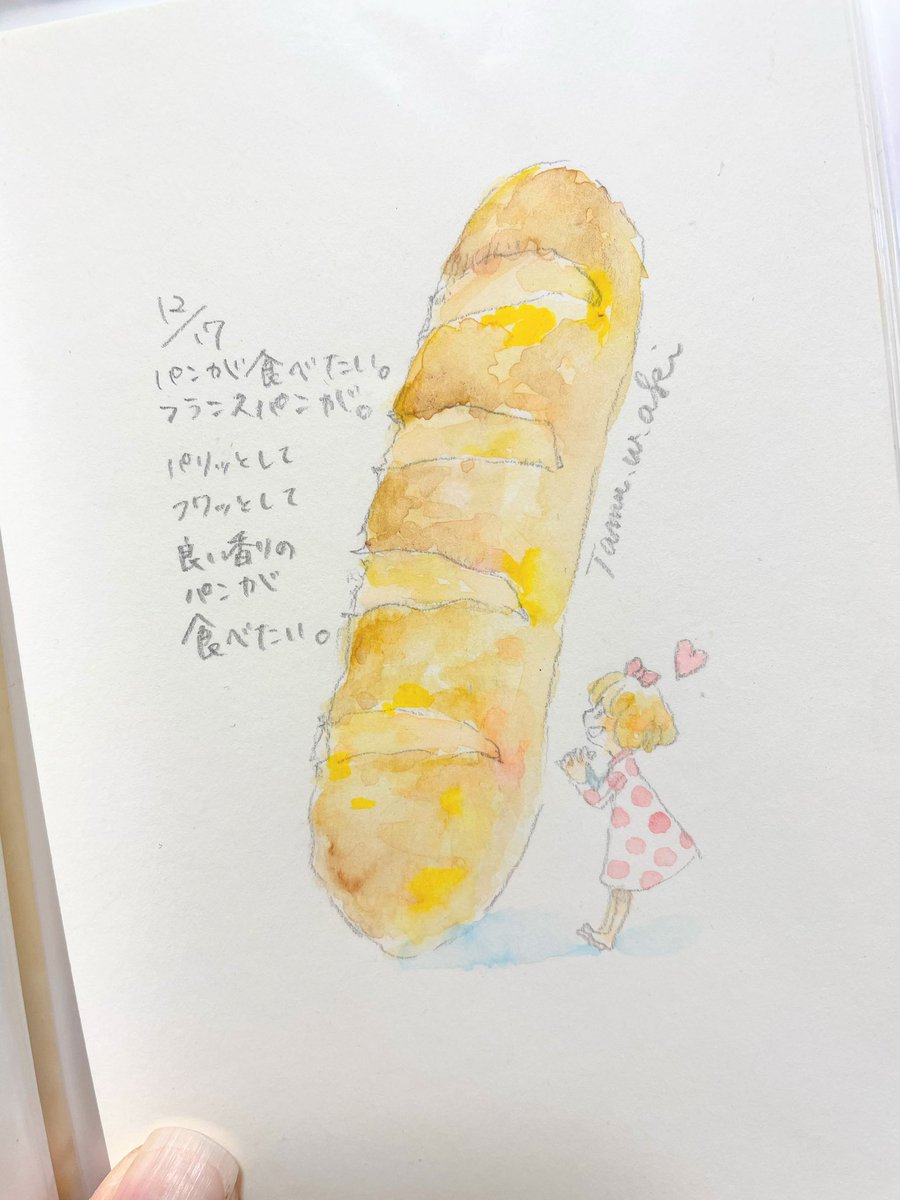 12/17
パンが食べたい。
フランスパンが。
パリッとして
フワッとして
良い香りの
パンが
食べたい。
Tamu.w.aki